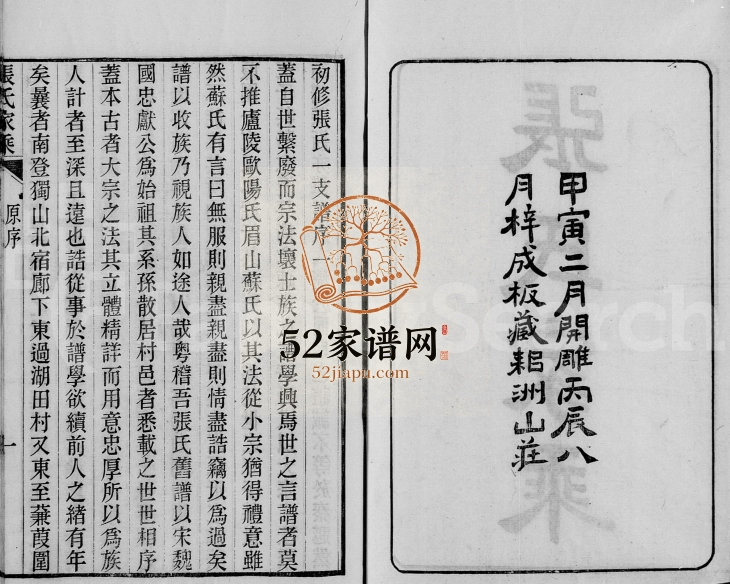 甲寅二月開雕丙辰八
月梓成板藏耜洲山莊
初修張氏一支譜序一
蓋自世繫廢而宗法壞士族之譜學興焉世之言譜者莫
不推廬陵歐陽氏眉山蘇氏以其法從小宗猶得禮意雖
然蘇氏有言曰無服則親盡親盡則情盡誥竊以為過矣
譜以收族乃視族人如途人哉粵稽吾張氏舊譜以宋魏
國忠獻公為始祖其系孫散居村邑者悉載之世世相序
蓋本古者大宗之法其立體精詳而用意忠厚所以為族
人計者至深且遠也誥從事於譜學欲續前人之緒有年
矣曩者南登獨山北宿廊下東過湖田村又東至蒹葭圍
張氏家乘
原序
一
52家谱网
52jiapu.com